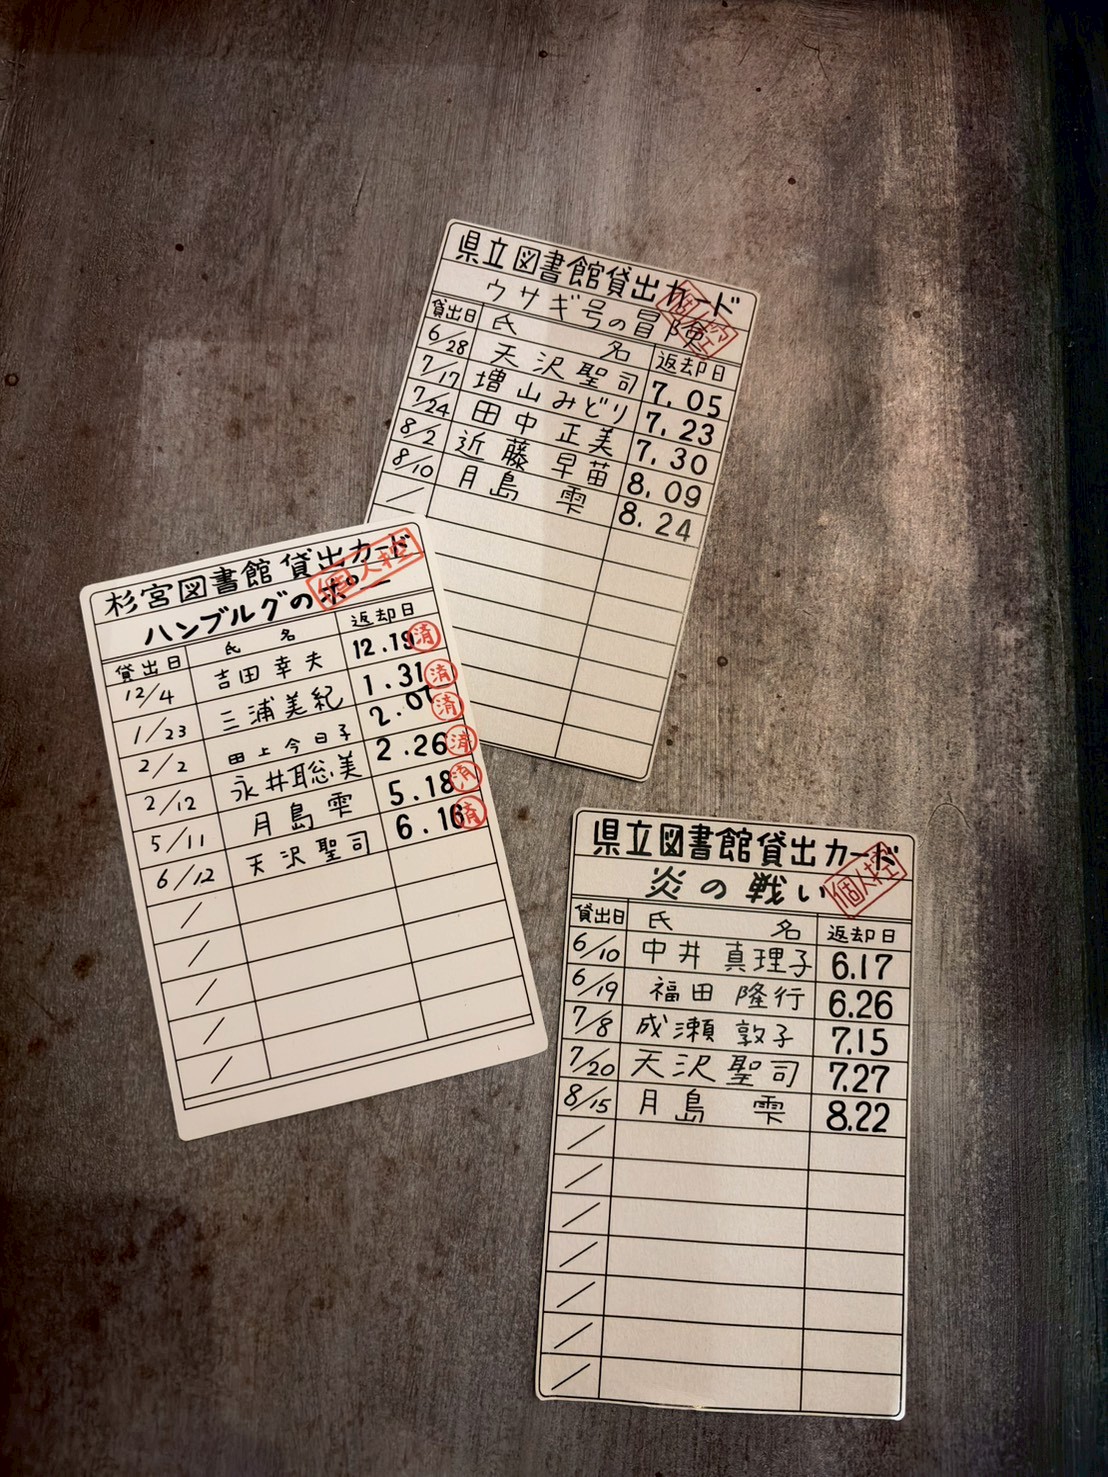 県立図書館貸出カード
ウサギ号の冒険
貸出日 氏 名 返却日
6/28 天沢聖司 7.05
7/17 増山みどり 7.23
7/24 田中正美 7.30
8/2 近藤早苗 8.09
8/10 月島 雫 8.24
/
杉宮図書館貸出カード
個人控
ハンブルグのポー
貸出日 氏 名 返却日
12/4 吉田幸夫 12.19 済
1/23 三浦美紀 1.31 済
2/2 田上今日子 2.07 済
2/12 永井聡美 2.26 済
5/11 月島 雫 5.18 済
6/12 天沢聖司 6.16 済
/
/
/
/
/
県立図書館貸出カード
個人控
炎の戦い
貸出日 氏 名 返却日
6/10 中井 真理子 6.17
6/19 福田 隆行 6.26
7/8 成瀬 敦子 7.15
7/20 天沢聖司 7.27
8/15 月島 雫 8.22
/
/
/
/
/
/
/